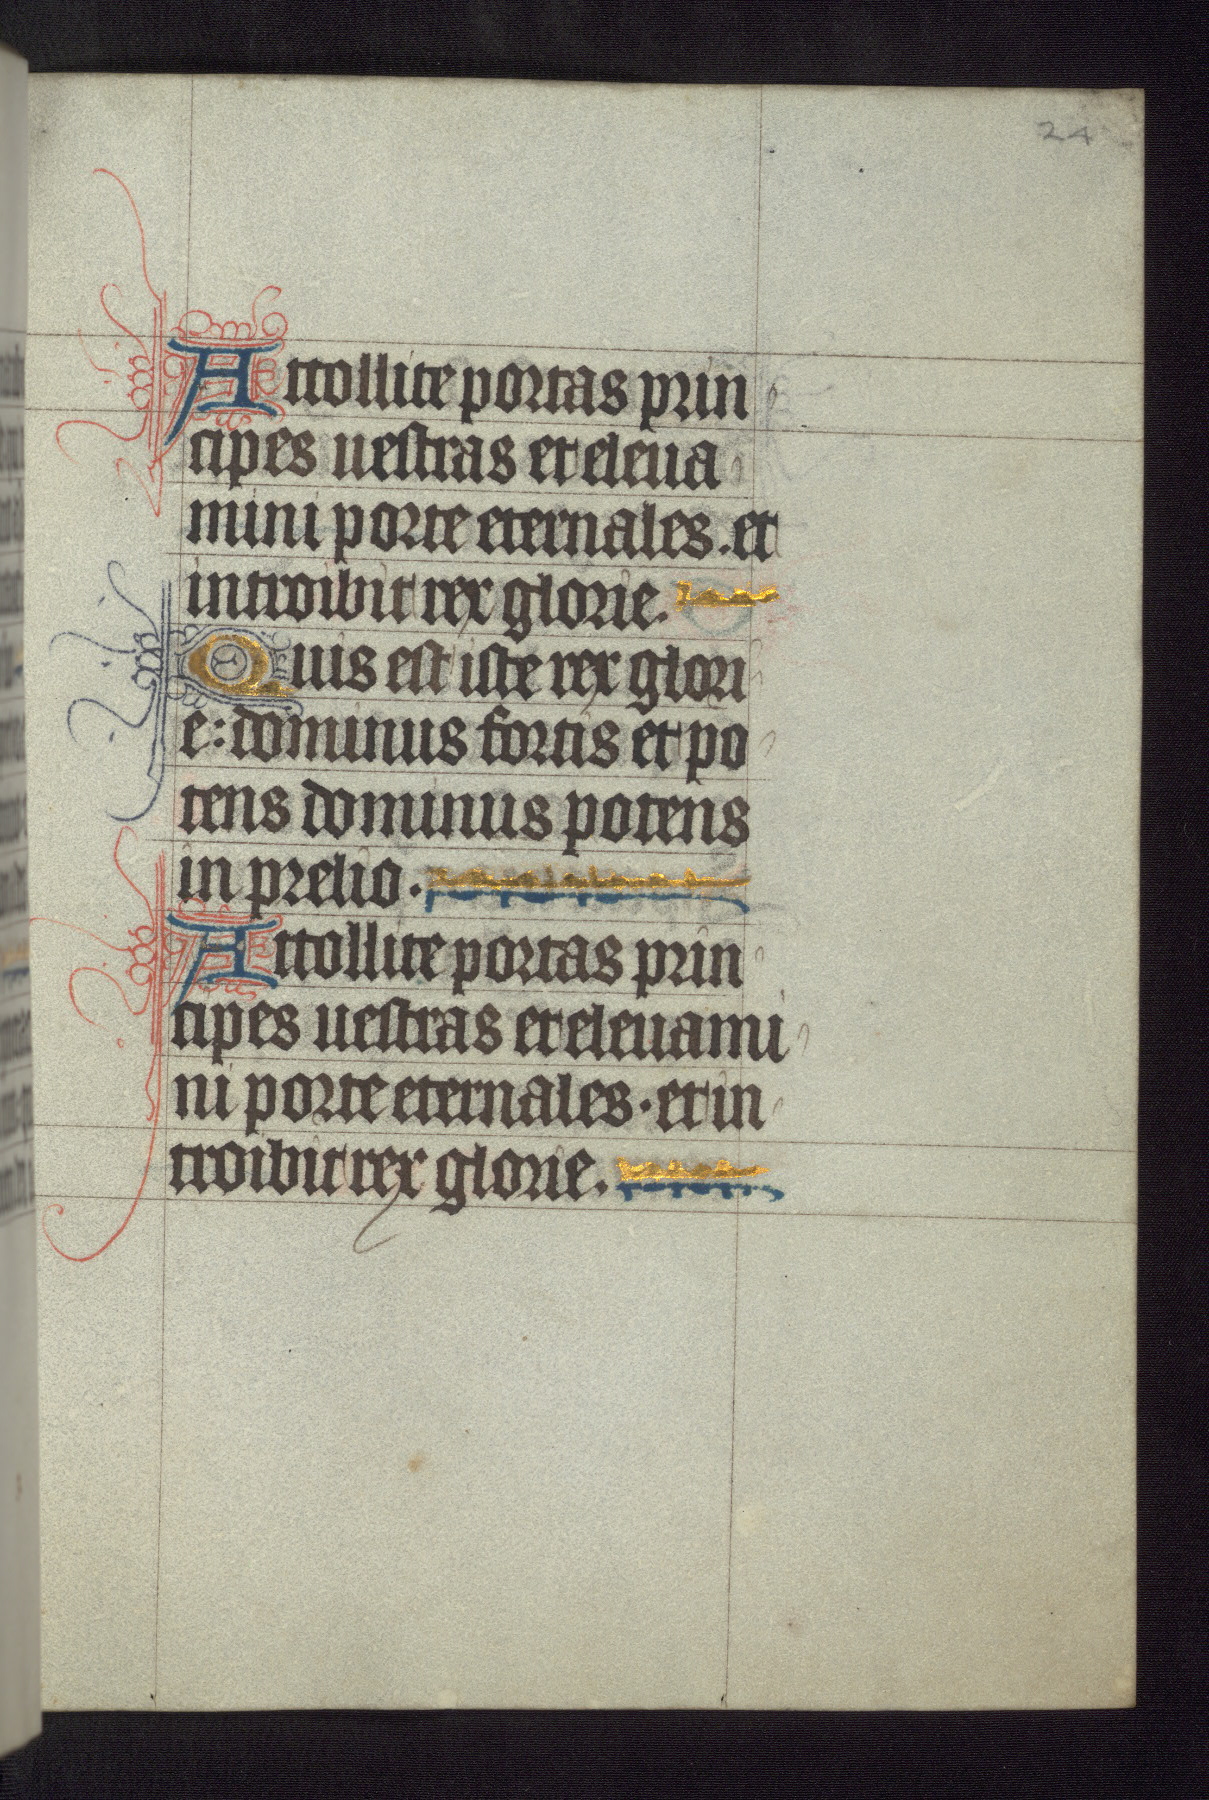 24
Attollite portas prin
cipes uestras et eleua
mini porte eternales. et
introibit rex glorie.
Quis est iste rex glori
e: dominus fortis et po
tens dominus potens
in prelio.
Attollite portas prin
cipes uestras et eleuami
ni porte eternales. et in
troibit rex glorie.